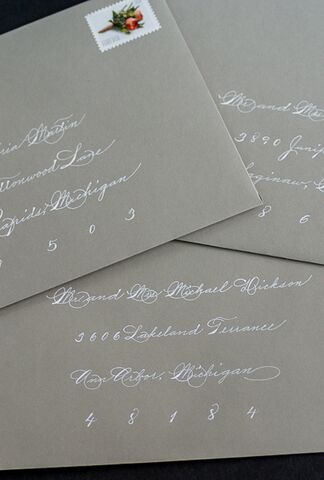 ria Martin
ttonwood Lane
apids, Michigan
503
Mr. and Mr
3890 Junip
aginaw,
86
Mr. and Mrs. Michael Dickson
3606 Lakeland Terrance
Ann Arbor, Michigan
48184